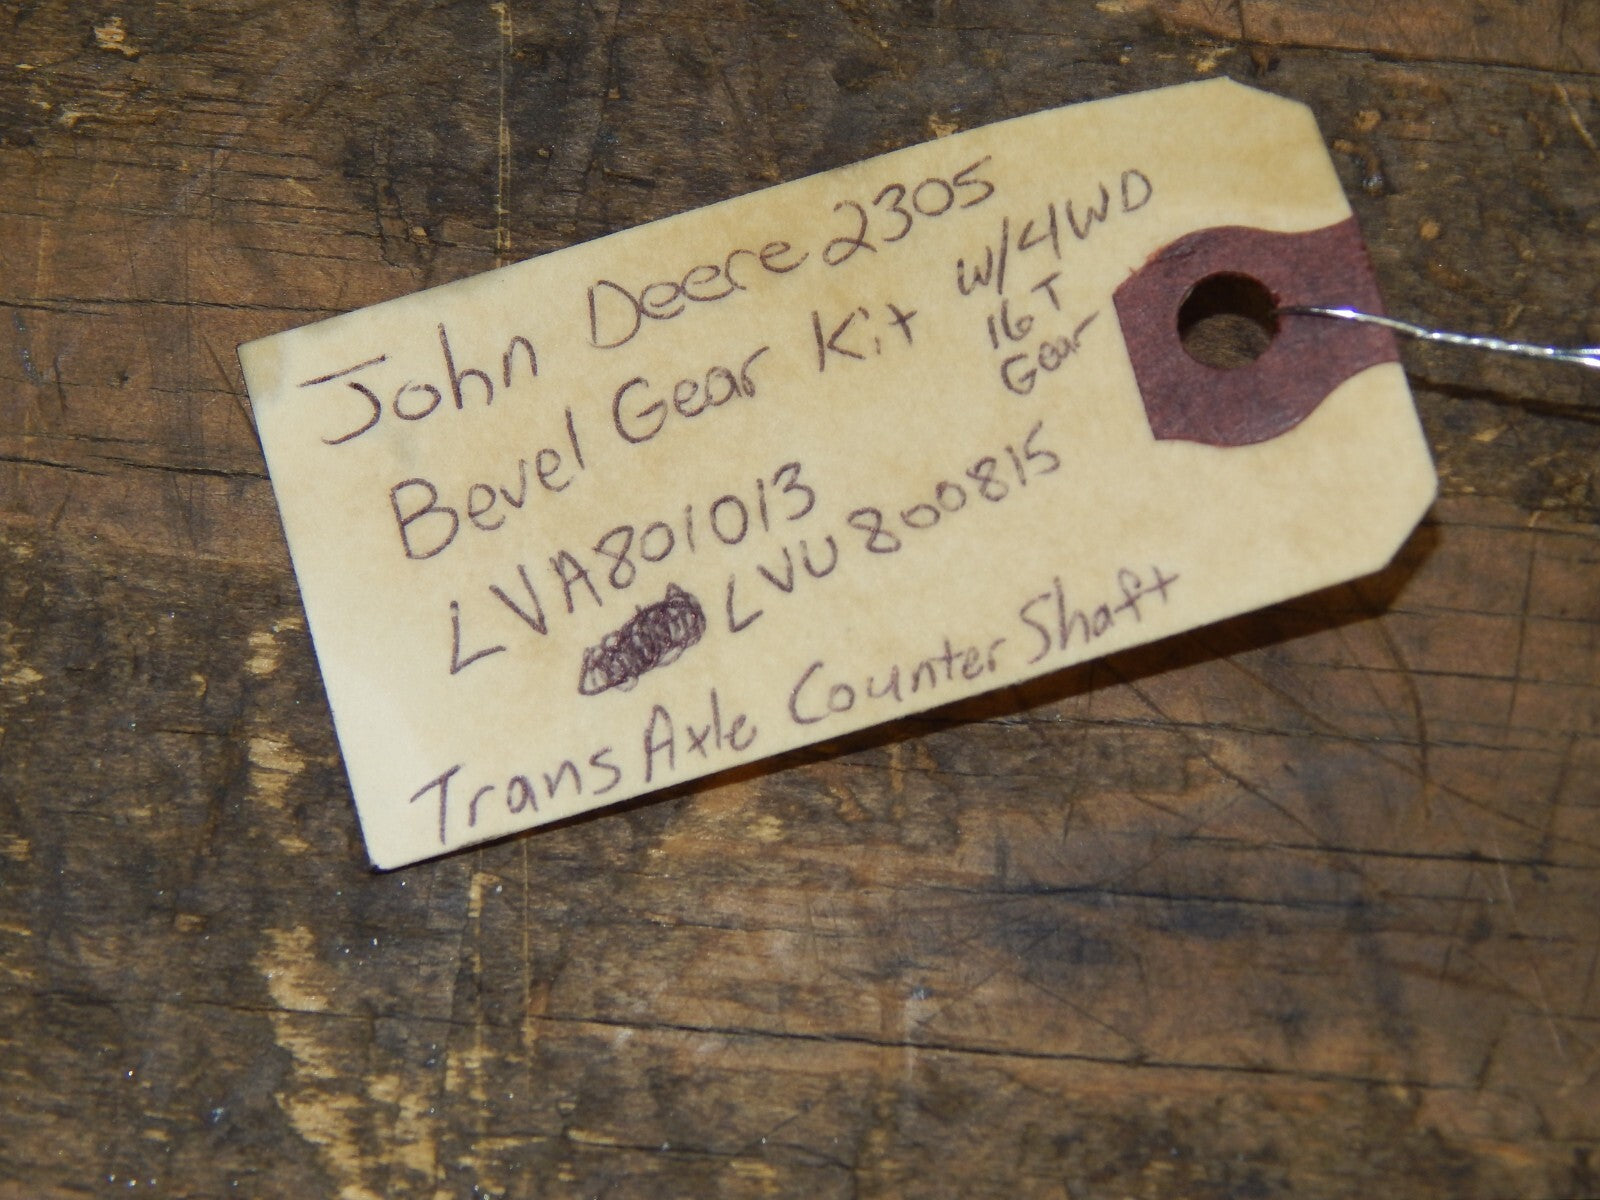 John Deere 2305
Bevel Gear Kit w/4WD
16T
Gear
LVA801013
LVU800815
Trans Axle Counter Shaft